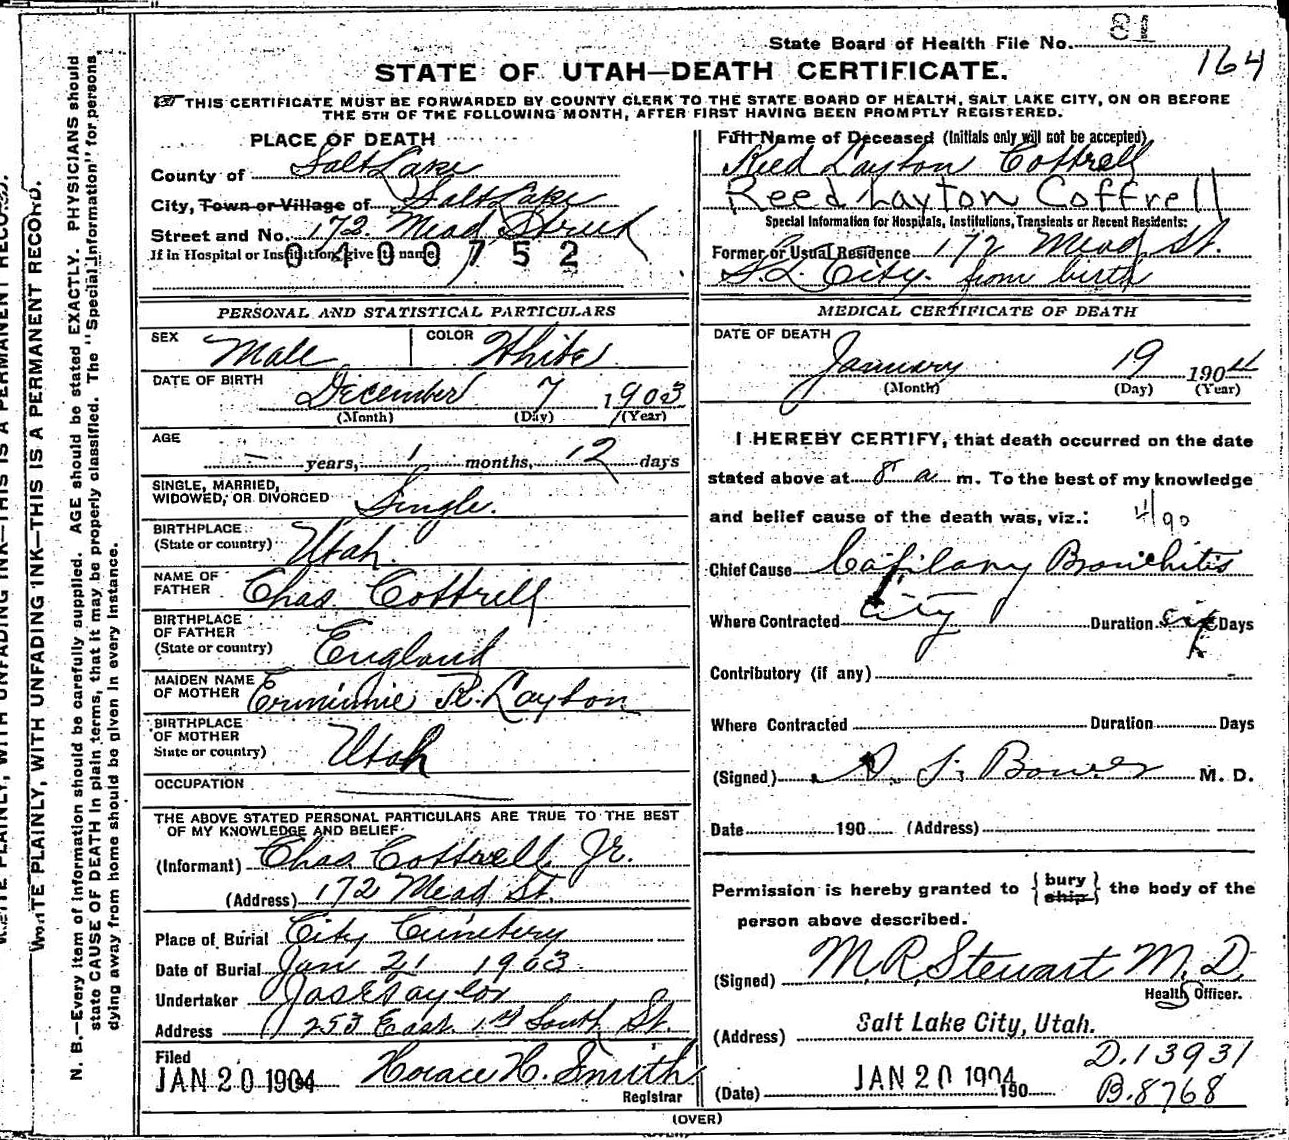 State Board of Health File No. 81
164
STATE OF UTAH—DEATH CERTIFICATE.
THIS CERTIFICATE MUST BE FORWARDED BY COUNTY CLERK TO THE STATE BOARD OF HEALTH, SALT LAKE CITY, ON OR BEFORE
THE 5TH OF THE FOLLOWING MONTH, AFTER FIRST HAVING BEEN PROMPTLY REGISTERED.
PLACE OF DEATH
County of Salt Lake
City, Town or Village of Salt Lake
Street and No. 172 Mead Street
If in Hospital or Institution, give it name
0400752
Full Name of Deceased (Initials only will not be accepted)
Reed Layton Cottrell
Reed Layton Coffrell
Special Information for Hospitals, Institutions, Transients or Recent Residents:
Former or Usual Residence 172 Mead St.
S. L. City. from birth
PERSONAL AND STATISTICAL PARTICULARS
SEX Male COLOR White
DATE OF BIRTH December 7 1903
(Month) (Day) (Year)
AGE
— years, 1 months, 12 days
SINGLE, MARRIED,
WIDOWED, OR DIVORCED Single.
BIRTHPLACE
(State or country) Utah.
NAME OF
FATHER Chas Cottrell
BIRTHPLACE
OF FATHER
(State or country) England
MAIDEN NAME
OF MOTHER Erminnie R. Layton
BIRTHPLACE
OF MOTHER
State or country) Utah
OCCUPATION
THE ABOVE STATED PERSONAL PARTICULARS ARE TRUE TO THE BEST
OF MY KNOWLEDGE AND BELIEF
(Informant) Chas Cottrell Jr.
(Address) 172 Mead St.
Place of Burial City Cemetery
Date of Burial Jan 21 1903
Undertaker Jas E Taylor
Address 253 East 1st South St.
Filed
JAN 20 1904 Horace H. Smith
Registrar
MEDICAL CERTIFICATE OF DEATH
DATE OF DEATH
January 19 1904
(Month) (Day) (Year)
I HEREBY CERTIFY, that death occurred on the date
stated above at 8 a m. To the best of my knowledge
and belief cause of the death was, viz.: 4/90
Chief Cause Capilary Bronchitis
Where Contracted City Duration six Days
Contributory (if any)
Where Contracted Duration Days
(Signed) Bower M. D.
Date 190 (Address)
Permission is hereby granted to { bury ship } the body of the
person above described.
(Signed) M R Stewart M. D.
Health Officer.
(Address) Salt Lake City, Utah.
D.13931
(Date) JAN 20 1904 190
B.8768
(OVER)
N. B.—Every item of information should be carefully supplied. AGE should be stated EXACTLY. PHYSICIANS should
state CAUSE OF DEATH in plain terms, that it may be properly classified. The "Special Information" for persons
dying away from home should be given in every instance.
WRITE PLAINLY, WITH UNFADING INK—THIS IS A PERMANENT RECORD.
WRITE PLAINLY, WITH UNFADING INK—THIS IS A PERMANENT RECORD.